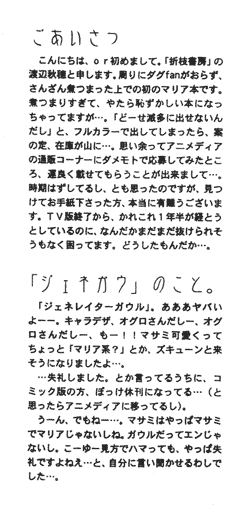 ごあいさつ
こんにちは、or初めまして。「折枝書房」の
渡辺秋穂と申します。周りにダグfanがおらず、
さんざん煮つまった上での初のマリア本です。
煮つまりすぎて、やたら恥ずかしい本になっ
ちゃってますが…。「どーせ滅多に出せないん
だし」と、フルカラーで出してしまったら、案
の定、在庫が山に…。思い余ってアニメディア
の通販コーナーにダメモトで応募してみたとこ
ろ、運良く載せてもらうことが出来まして…。
時期はずしてるし、とも思ったのですが、見つ
けてお手紙下さった方、本当に有難うございま
す。TV版終了から、かれこれ1年半が経とう
としているのに、なんだかまだまだ抜けられそ
うもなく困ってます。どうしたもんだか…。
「ジェネガウ」のこと。
「ジェネレイターガウル」。あああヤバい
よーー。キャラデザ、オグロさんだしー、オグ
ロさんだしー、もー！！マサミ可愛くって
ちょっと「マリア系？」とか、ズキューンと来
そうになりましたよ…。
…失礼しました。とか言ってるうちに、コ
ミック版の方、ぽっけ休刊になってる…（と
思ったらアニメディアに移ってるし）。
うーん、でもねー…。マサミはやっぱマサミ
でマリアじゃないしね。ガウルだってエンじゃ
ないし。こーゆー見方でハマっても、やっぱ失
礼ですよねえ…と、自分に言い聞かせるわしで
した…。